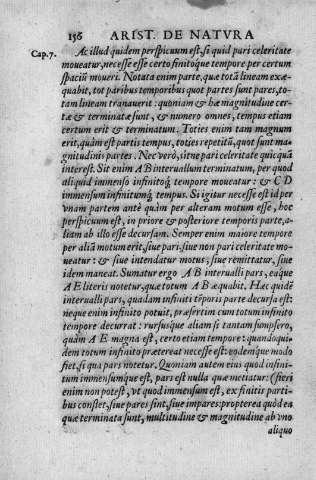 156 ARIST. DE NATVRA
Cap.7.
Ac illud quidem perspicuum est, si quid pari celeritate
moueatur, necesse esse certo finitoque tempore per certum
spaciũ moueri. Notata enim parte, quæ totã lineam exæ-
quabit, tot paribus temporibus quot partes sunt pares, to-
tam lineam tranauerit: quoniam & hæ magnitudine cer-
tæ & terminatæ sunt, & numero omnes, tempus etiam
certum erit & terminatum. Toties enim tam magnum
erit, quàm est partis tempus, toties repetitũ, quot sunt ma-
gnitudinis partes. Nec verò, si tne pari celeritate quicquã
interest. Sit enim A B interuallum terminatum, per quod
aliquid immenso infinitoq́ tempore moueatur: & C D
immensum infinitumq́ tempus. Si igitur necesse est id per
vnam partem ante quàm per alteram motum esse, hoc
perspicuum est, in priore & posteriore temporis parte, a-
liam ab illo esse decursam. Semper enim maiore tempore
per aliã motum erit, siue pari, siue non pari celeritate mo-
ueatur: & siue intendatur motus, siue remittatur, siue
idem maneat. Sumatur ergo A B interualli pars, eaque
A E literis notetur, quæ totum A B æquabit. Hæc quidẽ
interualli pars, quadam infiniti tẽporis parte decursa est:
neque enim infinito potuit, præsertim cum totum infinito
tempore decurrat: rursusque aliam si tantam sumpsero,
quàm A E magna est, certo etiam tempore: quandoqui-
dem totum infinito prætereat necesse est: eodemque modo
fiet, si qua pars notetur. Quoniam autem eius quod infini-
tum immensumque est, pars est nulla quæ metiatur: (fieri
enim non potest, vt quod immensum est, ex finitis parti-
bus constet, siue pares sint, siue impares: propterea quòd ea
quæ terminata sunt, multitudine & magnitudine ab vno
aliquo